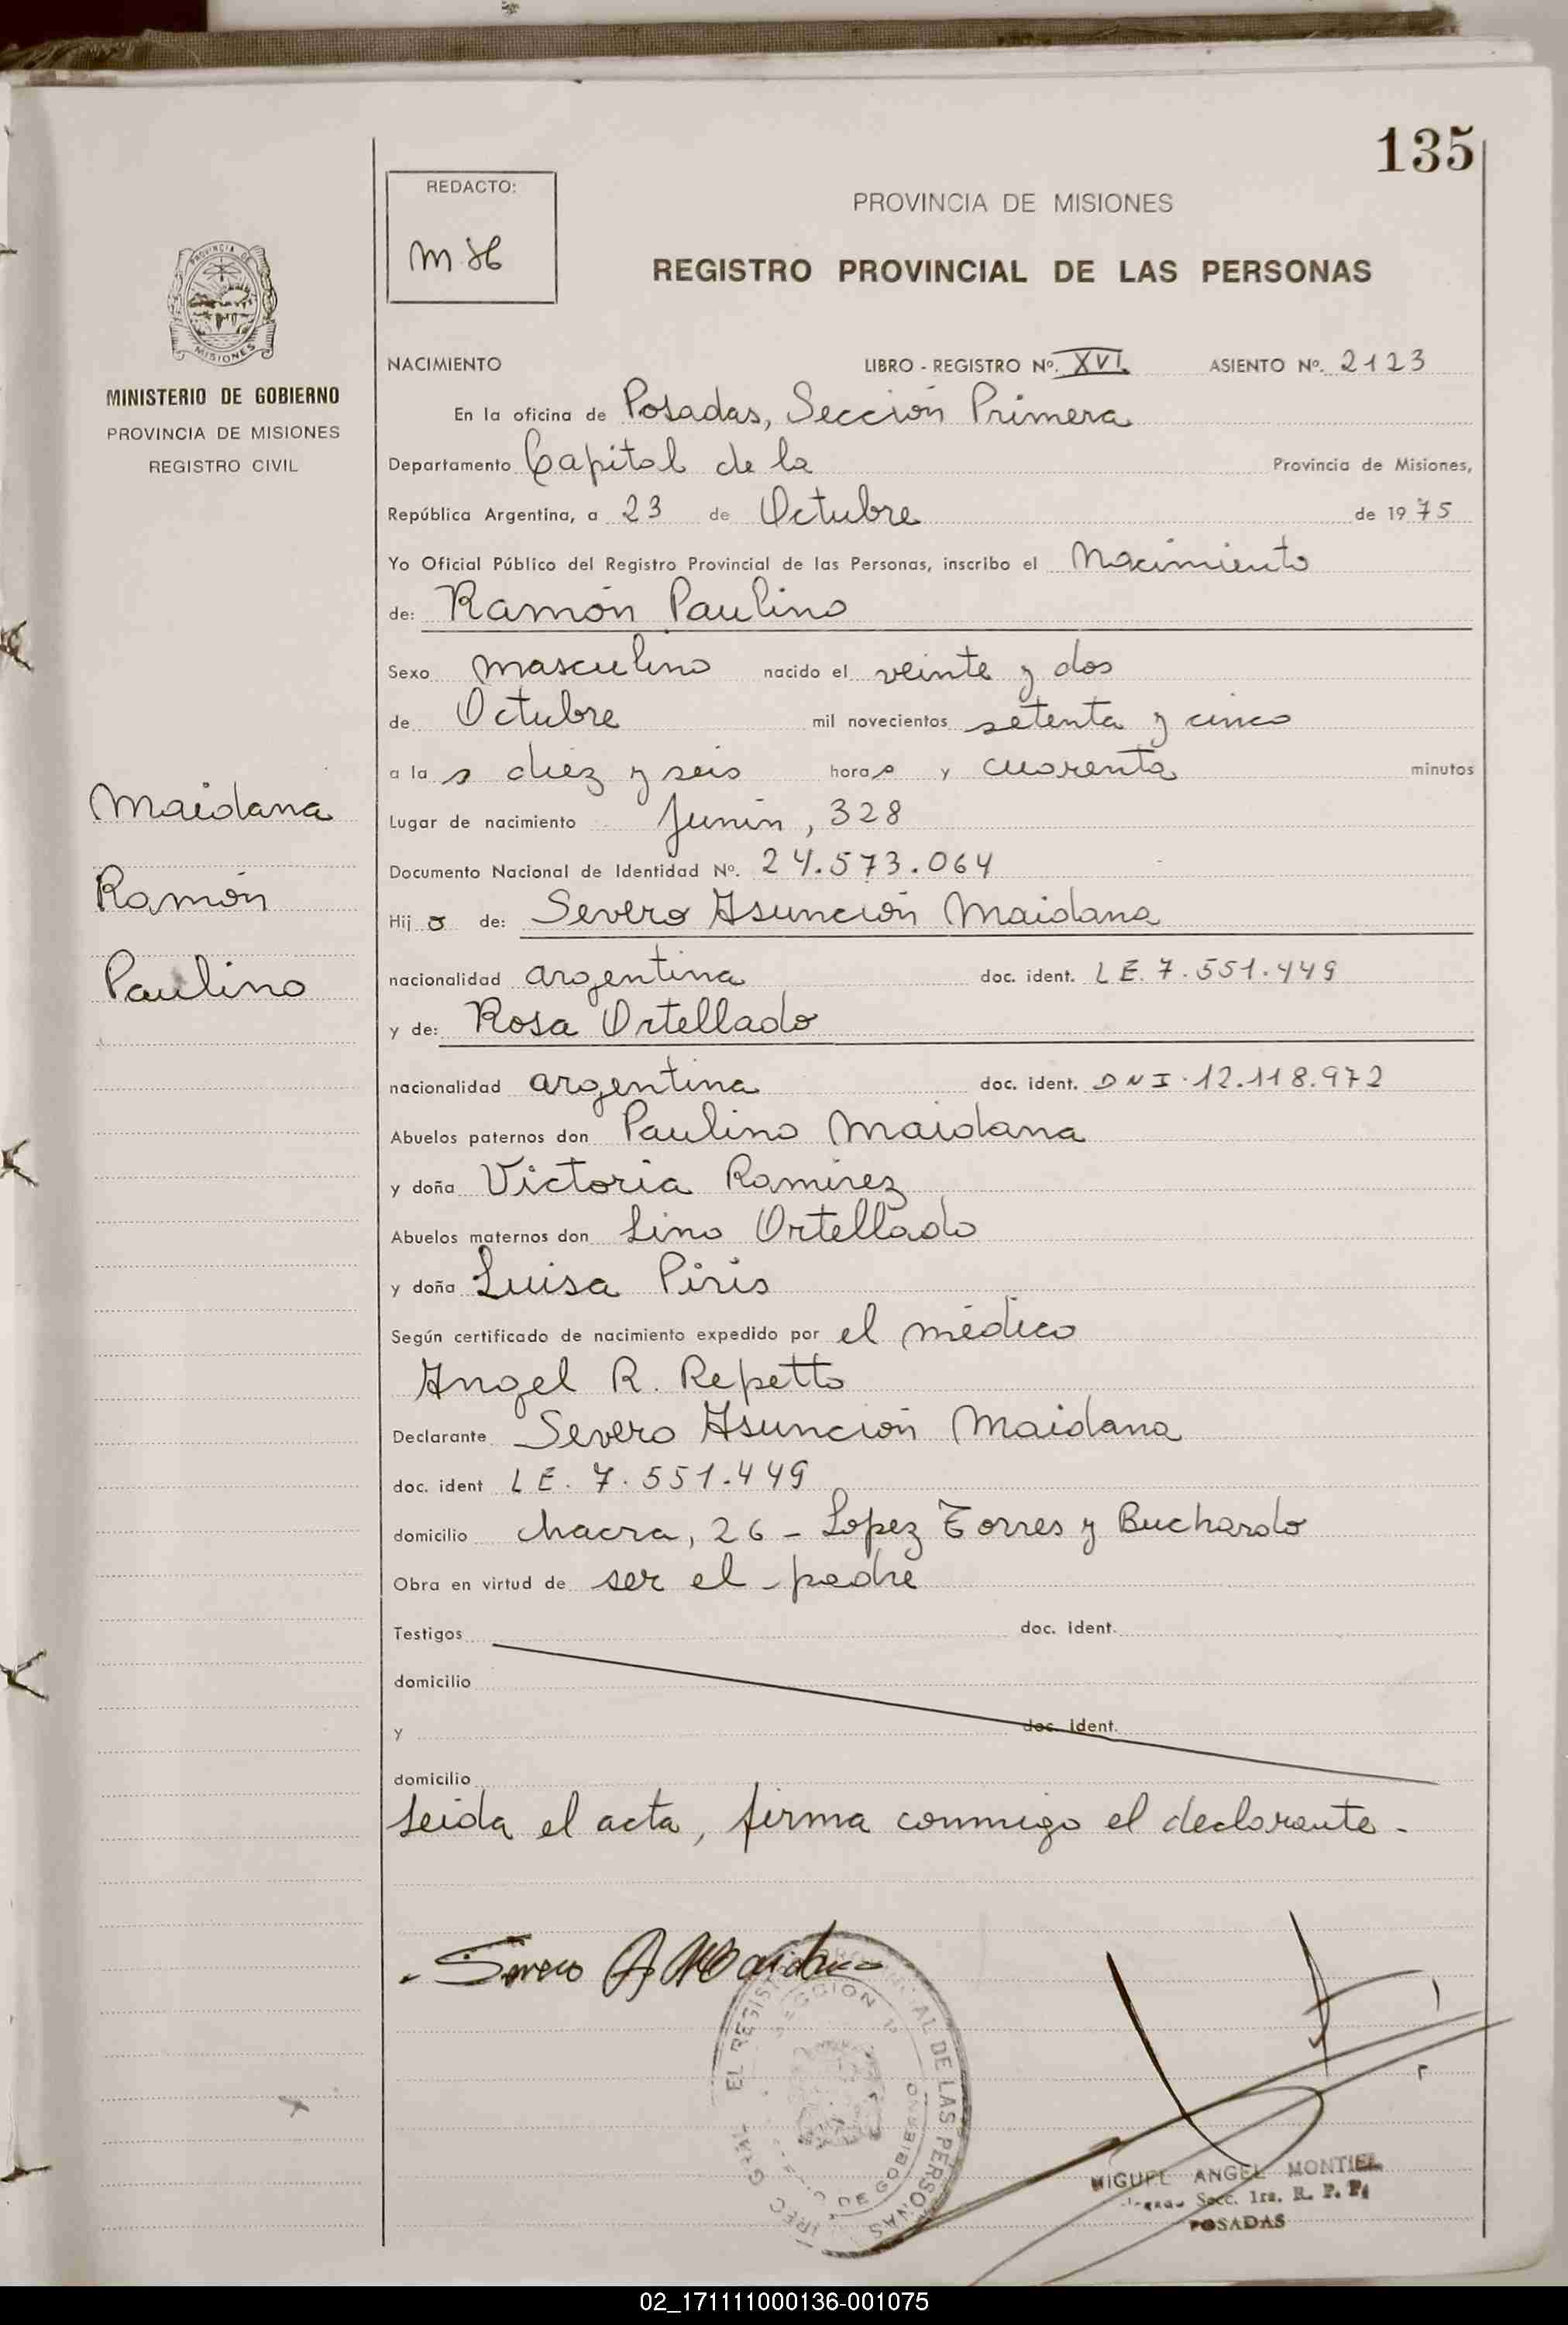 135
REDACTO:
PROVINCIA DE MISIONES
REGISTRO PROVINCIAL DE LAS PERSONAS
MINISTERIO DE GOBIERNO
PROVINCIA DE MISIONES
REGISTRO CIVIL
NACIMIENTO LIBRO - REGISTRO Nº. XVI. ASIENTO Nº. 2123
En la oficina de Posadas, Sección Primera
Departamento Capital de la Provincia de Misiones,
República Argentina, a 23 de Octubre de 1975
Yo Oficial Público del Registro Provincial de las Personas, inscribo el Nacimiento
de: Ramón Paulino
Sexo masculino nacido el veinte y dos
de Octubre mil novecientos setenta y cinco
a las diez y seis horas y cuarenta minutos
Maidana
Ramón
Paulino
Lugar de nacimiento Junín, 328
Documento Nacional de Identidad Nº. 24.573.064
Hijo de: Severo Asunción Maidana
nacionalidad argentina doc. ident. LE. 7.551.449
y de: Rosa Ortellado
nacionalidad argentina doc. ident. DNI. 12.118.972
Abuelos paternos don Paulino Maidana
y doña Victoria Ramírez
Abuelos maternos don Lino Ortellado
y doña Luisa Piris
Según certificado de nacimiento expedido por el médico
Angel R. Repetto
Declarante Severo Asunción Maidana
doc. ident LE. 7.551.449
domicilio chacra, 26 - Lopez Torres y Buchardo
Obra en virtud de ser el padre
Testigos doc. ident.
domicilio
y doc. ident.
domicilio
Leida el acta, firma conmigo el declarante.
Severo A Maidana
SECCION 1ª
DE LAS PERSONAS
DE GOBIERNO
MIGUEL ANGEL MONTIEL
Secc. 1ra. R. P. P.
POSADAS
02_171111000136-001075